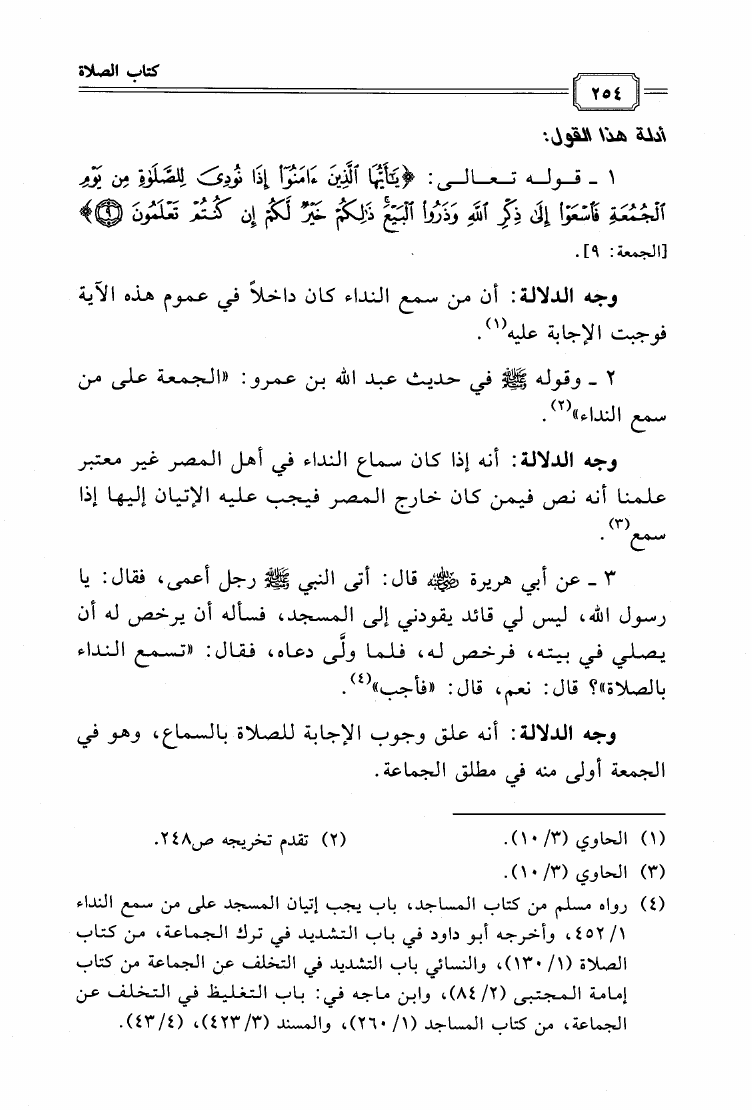 كتاب الصلاة
٢٥٤
أدلة هذا القول:
١ ـ قـولـه تـعـالـى: ﴿يَٰٓأَيُّهَا ٱلَّذِينَ ءَامَنُوٓاْ إِذَا نُودِيَ لِلصَّلَوٰةِ مِن يَوْمِ
ٱلْجُمُعَةِ فَٱسْعَوْاْ إِلَىٰ ذِكْرِ ٱللَّهِ وَذَرُواْ ٱلْبَيْعَۚ ذَٰلِكُمْ خَيْرٌ لَّكُمْ إِن كُنتُمْ تَعْلَمُونَ ۝٩﴾
[الجمعة: ٩].
وجه الدلالة: أن من سمع النداء كان داخلاً في عموم هذه الآية
فوجبت الإجابة عليه(١).
٢ ـ وقوله ﷺ في حديث عبد الله بن عمرو: «الجمعة على من
سمع النداء»(٢).
وجه الدلالة: أنه إذا كان سماع النداء في أهل المصر غير معتبر
علمنا أنه نص فيمن كان خارج المصر فيجب عليه الإتيان إليها إذا
سمع(٣).
٣ ـ عن أبي هريرة رضي الله عنه قال: أتى النبي ﷺ رجل أعمى، فقال: يا
رسول الله، ليس لي قائد يقودني إلى المسجد، فسأله أن يرخص له أن
يصلي في بيته، فرخص له، فلما ولَّى دعاه، فقال: «تسمع النداء
بالصلاة»؟ قال: نعم، قال: «فأجب»(٤).
وجه الدلالة: أنه علق وجوب الإجابة للصلاة بالسماع، وهو في
الجمعة أولى منه في مطلق الجماعة.
(١) الحاوي (٣/ ١٠). (٢) تقدم تخريجه ص٢٤٨.
(٣) الحاوي (٣/ ١٠).
(٤) رواه مسلم من كتاب المساجد، باب يجب إتيان المسجد على من سمع النداء
١/ ٤٥٢، وأخرجه أبو داود في باب التشديد في ترك الجماعة، من كتاب
الصلاة (١/ ١٣٠)، والنسائي باب التشديد في التخلف عن الجماعة من كتاب
إمامة المجتبى (٢/ ٨٤)، وابن ماجه في: باب التغليظ في التخلف عن
الجماعة، من كتاب المساجد (١/ ٢٦٠)، والمسند (٣/ ٤٢٣)، (٤/ ٤٣).